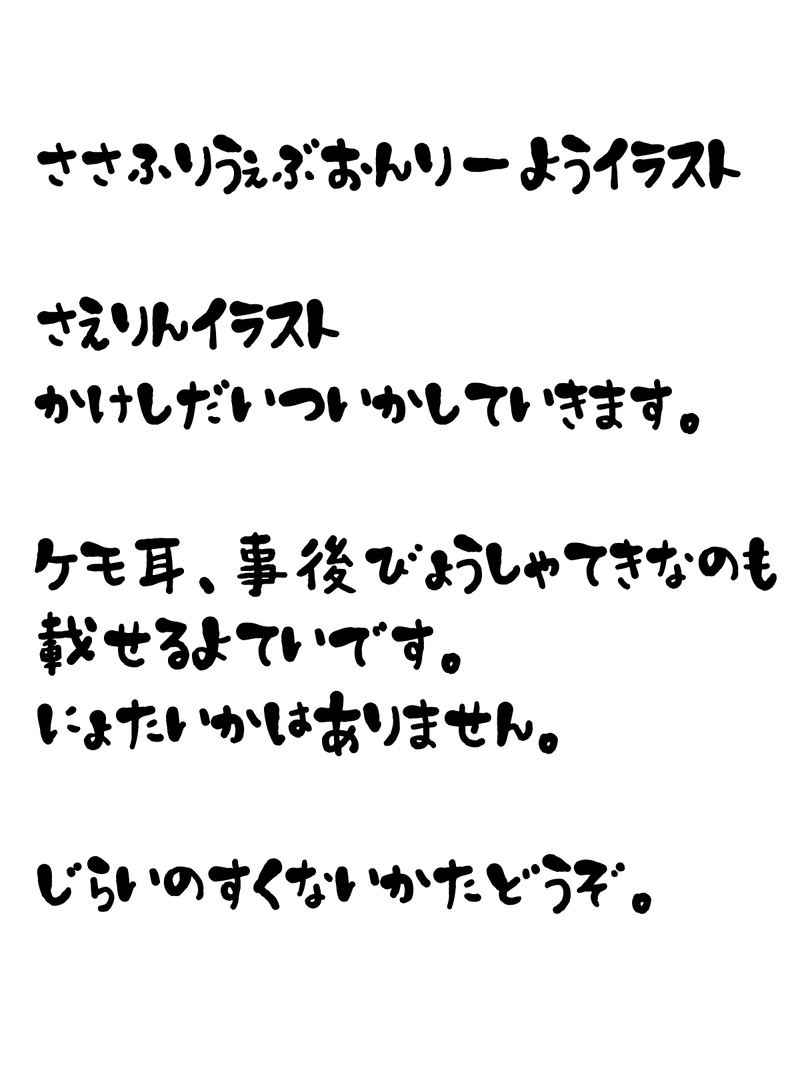 ささふりうぇぶおんりーようイラスト
さえりんイラスト
かけしだいついかしていきます。
ケモ耳、事後びょうしゃてきなのも
載せるよていです。
にょたいかはありません。
じらいのすくないかたどうぞ。